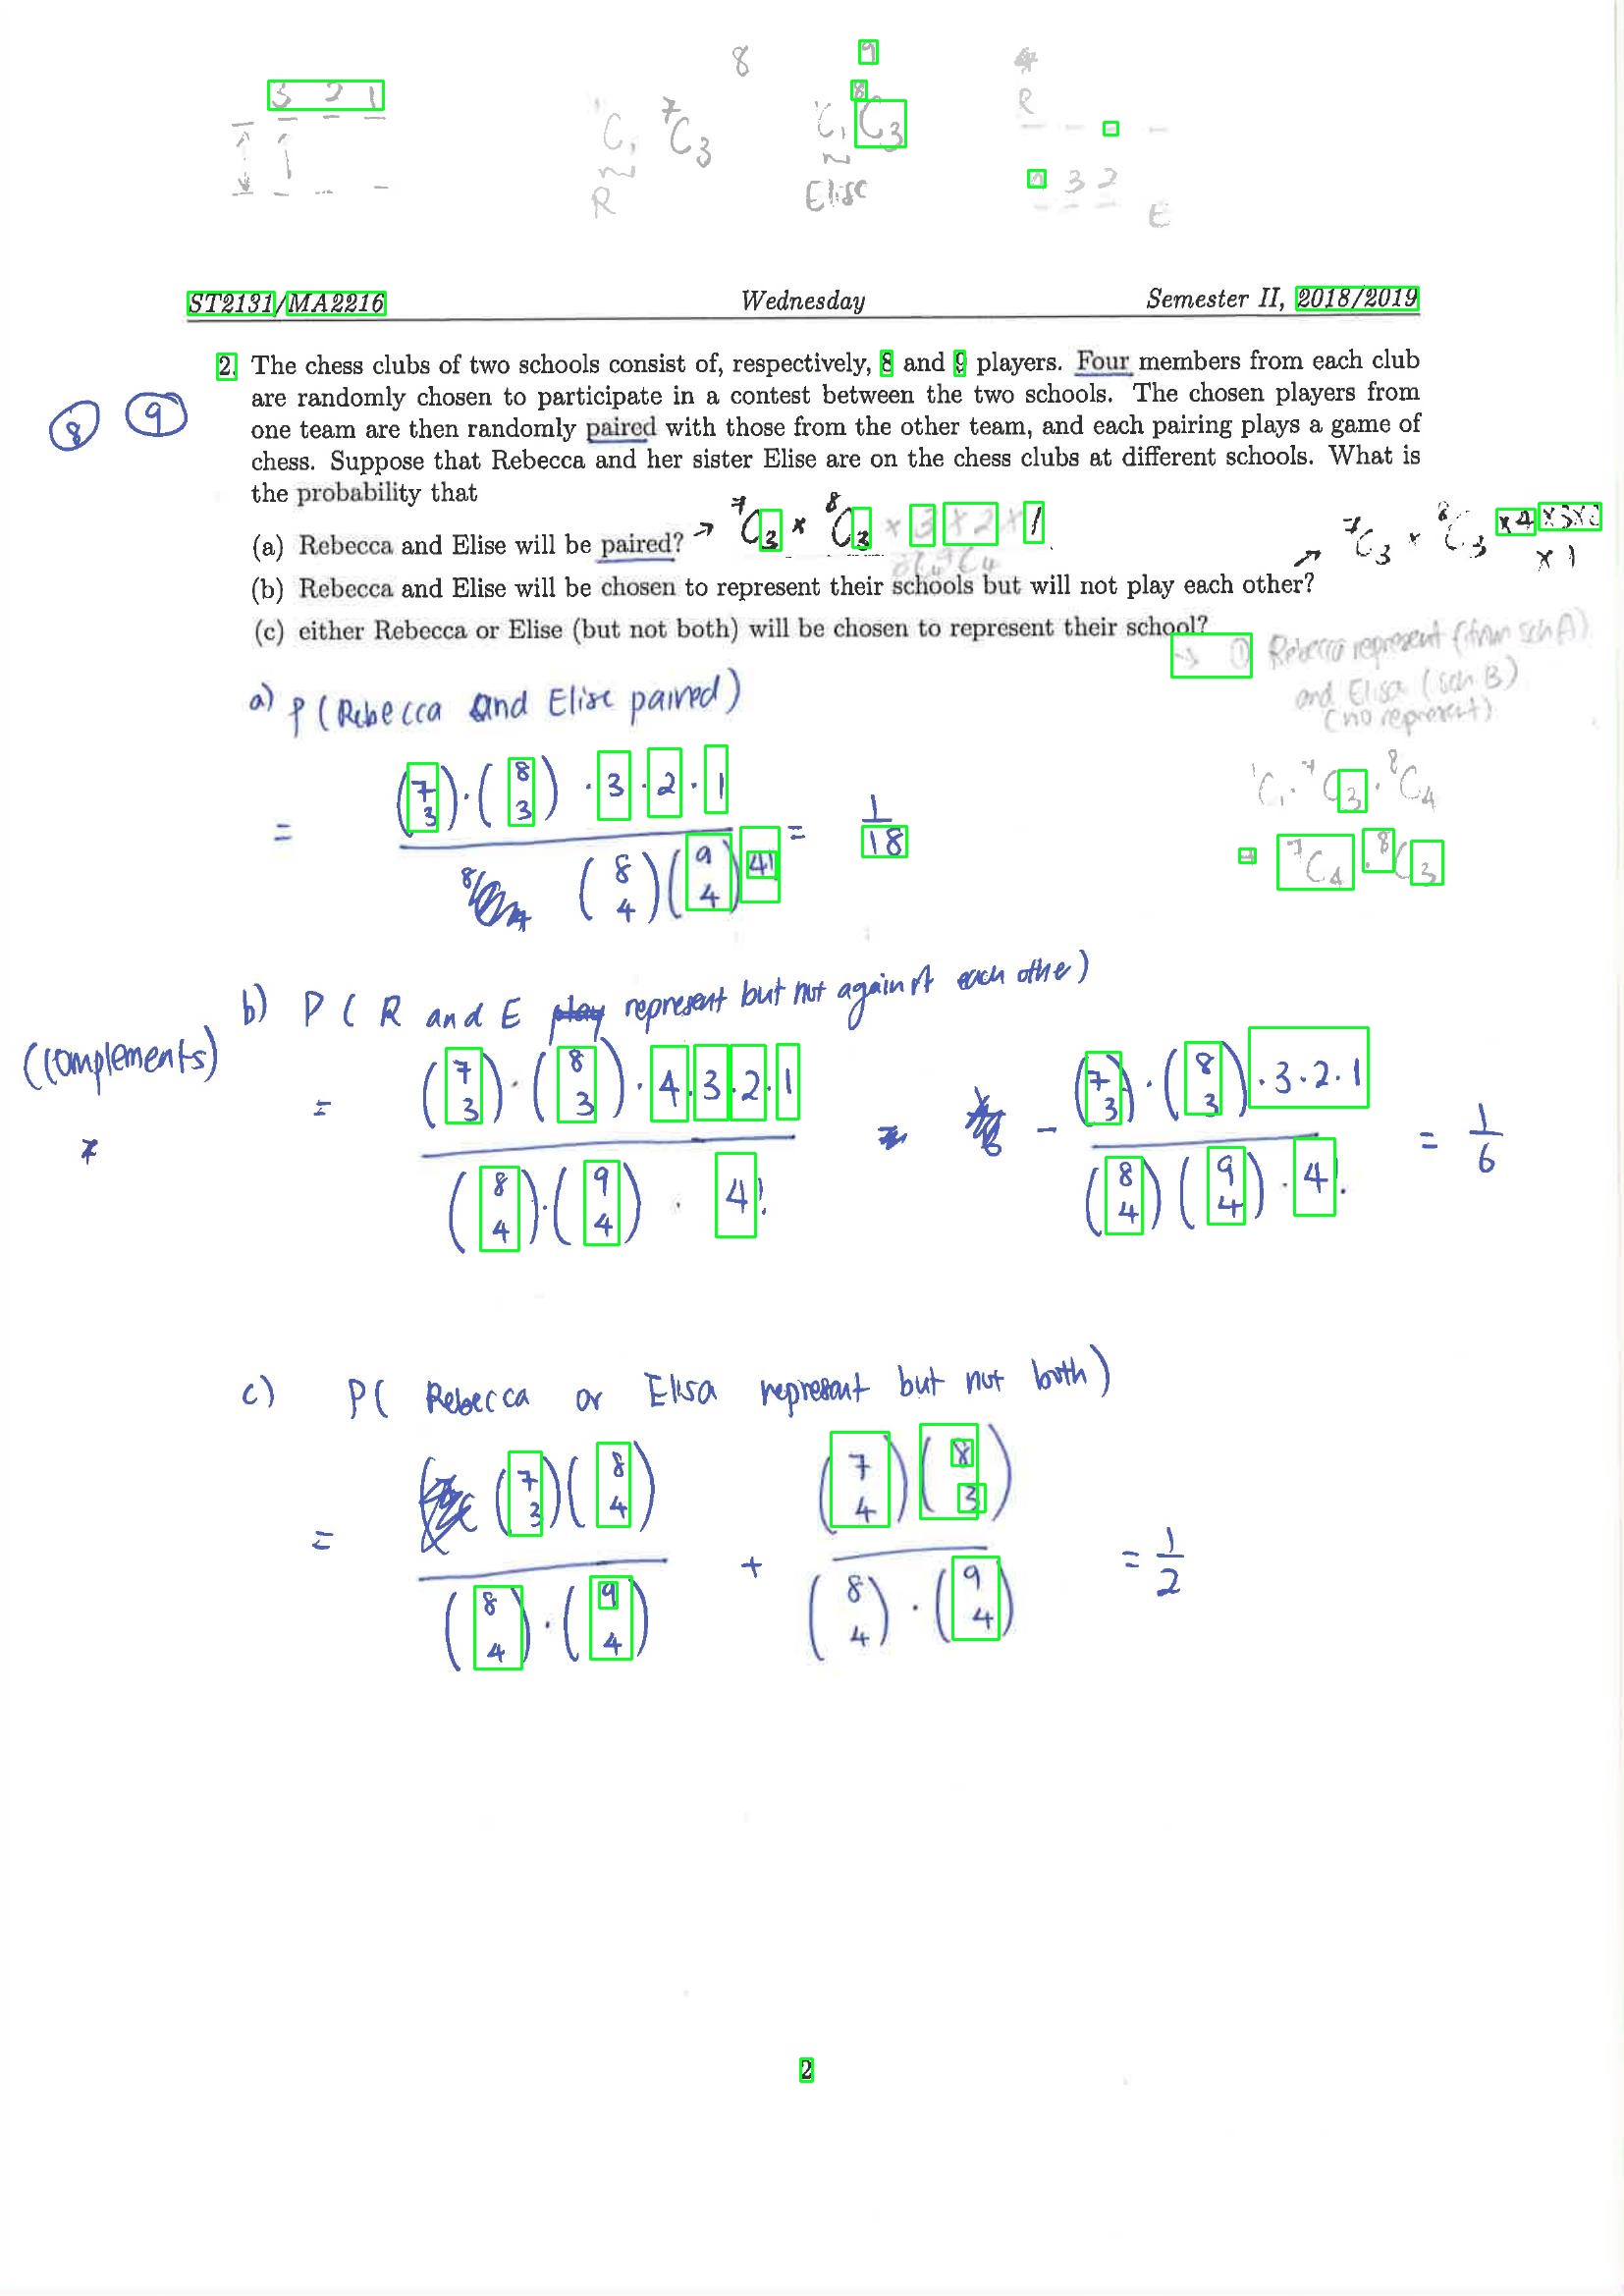 8 9
3 2 1
¹C₁ ⁷C₃ ¹C₁ ⁸C₃ R
R Elise 3 2 E
ST2131/MA2216 Wednesday Semester II, 2018/2019
8 9
2. The chess clubs of two schools consist of, respectively, 8 and 9 players. Four members from each club
are randomly chosen to participate in a contest between the two schools. The chosen players from
one team are then randomly paired with those from the other team, and each pairing plays a game of
chess. Suppose that Rebecca and her sister Elise are on the chess clubs at different schools. What is
the probability that
(a) Rebecca and Elise will be paired? → ⁷C₃ × ⁸C₃ × 3 × 2 × 1
⁸C₄ ⁹C₄
→ ⁷C₃ × ⁸C₃ × 4 × 3 × 2
× 1
(b) Rebecca and Elise will be chosen to represent their schools but will not play each other?
(c) either Rebecca or Elise (but not both) will be chosen to represent their school?
→ ① Rebecca represent (from sch A)
and Elisa (sch B)
(no represent)
¹C₁ · ⁷C₃ · ⁸C₄
⁷C₄ · ⁸C₃
a) P (Rebecca and Elise paired)
= (7 3) · (8 3) · 3 · 2 · 1 / (8 4)(9 4) 4! = 1/18
b) P ( R and E play represent but not against each othe)
(complements)
= (7 3) · (8 3) · 4 · 3 · 2 · 1 / (8 4) · (9 4) · 4! - (7 3) · (8 3) · 3 · 2 · 1 / (8 4) (9 4) · 4! = 1/6
c) P( Rebecca or Elisa represent but not both)
= (7 3)(8 4) / (8 4) · (9 4) + (7 4)(8 3) / (8 4) · (9 4) = 1/2
2